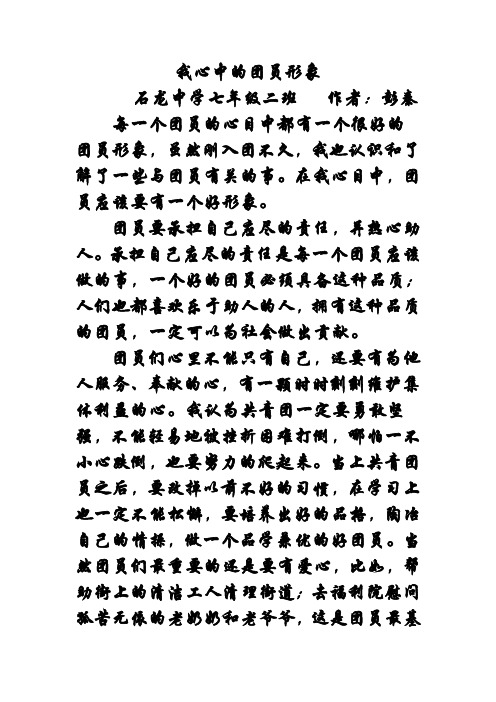 我心中的团员形象
石龙中学七年级二班 作者：彭秦
每一个团员的心目中都有一个很好的
团员形象，虽然刚入团不久，我也认识和了
解了一些与团员有关的事。在我心目中，团
员应该要有一个好形象。
团员要承担自己应尽的责任，并热心助
人。承担自己应尽的责任是每一个团员应该
做的事，一个好的团员必须具备这种品质；
人们也都喜欢乐于助人的人，拥有这种品质
的团员，一定可以为社会做出贡献。
团员们心里不能只有自己，还要有为他
人服务、奉献的心，有一颗时时刻刻维护集
体利益的心。我认为共青团一定要勇敢坚
强，不能轻易地被挫折困难打倒，哪怕一不
小心跌倒，也要努力的爬起来。当上共青团
员之后，要改掉以前不好的习惯，在学习上
也一定不能松懈，要培养出好的品格，陶冶
自己的情操，做一个品学兼优的好团员。当
然团员们最重要的还是要有爱心，比如，帮
助街上的清洁工人清理街道；去福利院慰问
孤苦无依的老奶奶和老爷爷，这是团员最基